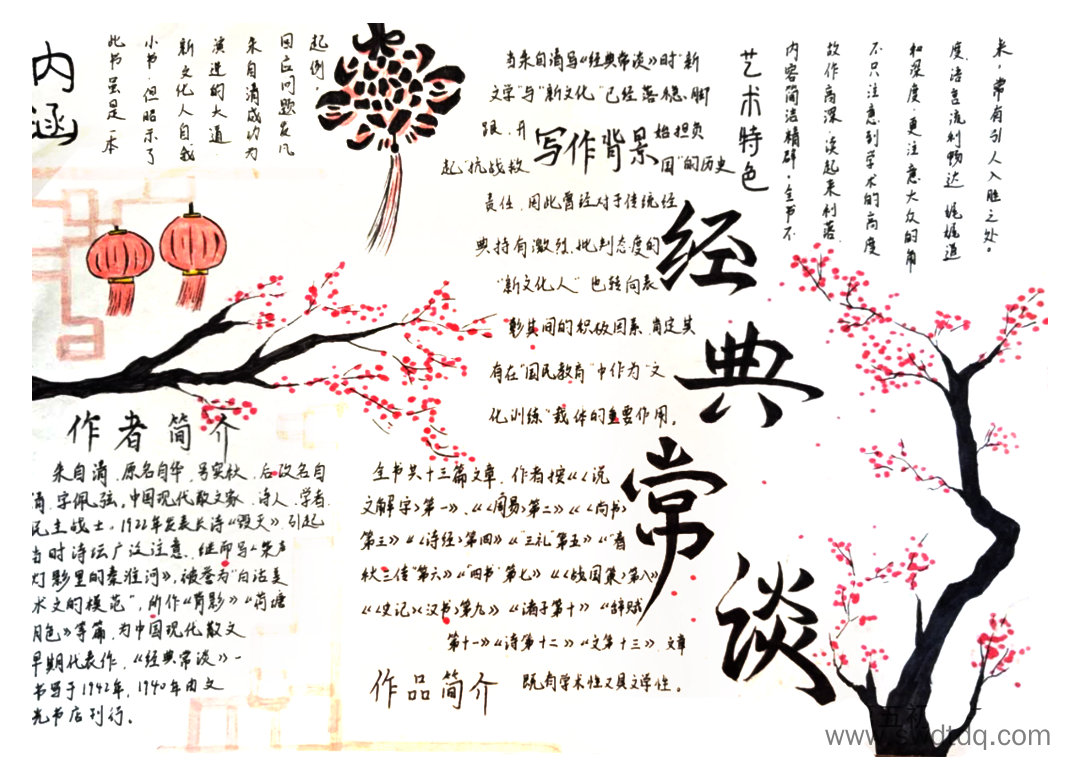 内涵
此书虽是一本
小书,但昭示了
新文化人自我
演进的大道
朱自清成功为
回应问题发凡
起例。
当朱自清写《经典常谈》时"新
文学"与"新文化"已经落稳脚
跟,开
写作背景
始担负
起"抗战救
国"的历史
责任,因此曾经对于传统经
典持有激烈批判态度的
"新文化人"也转向表
彰其间的积极因素,肯定其
存在"国民教育"中作为"文
化训练"载体的重要作用。
艺术特色
内容简洁精辟。全书不
故作高深,谈起来利落,
不只注意到学术的高度
和深度,更注意大众的角
度,语言流利畅达,娓娓道
来,常有引人入胜之处。
经典常谈
作者简介
朱自清,原名自华,号实秋,后改名自
清,字佩弦。中国现代散文家、诗人、学者、
民主战士。1922年发表长诗《毁灭》,引起
当时诗坛广泛注意,继而写《桨声
灯影里的秦淮河》,被誉为"白话美
术文的模范",所作《背影》《荷塘
月色》等篇,为中国现代散文
早期代表作,《经典常谈》一
书写于1942年,1940年由文
光书店刊行。
全书共十三篇文章,作者按《〈说
文解字〉第一》、《〈周易〉第二》《〈尚书〉
第三》《〈诗经〉第四》《"三礼"第五》《"春
秋三传"第六》《"四书"第七》《〈战国策〉第八》
《〈史记〉〈汉书〉第九》《诸子第十》《辞赋
第十一》《诗第十二》《文第十三》,文章
既有学术性又具文学性。
作品简介
www.swdtdq.com